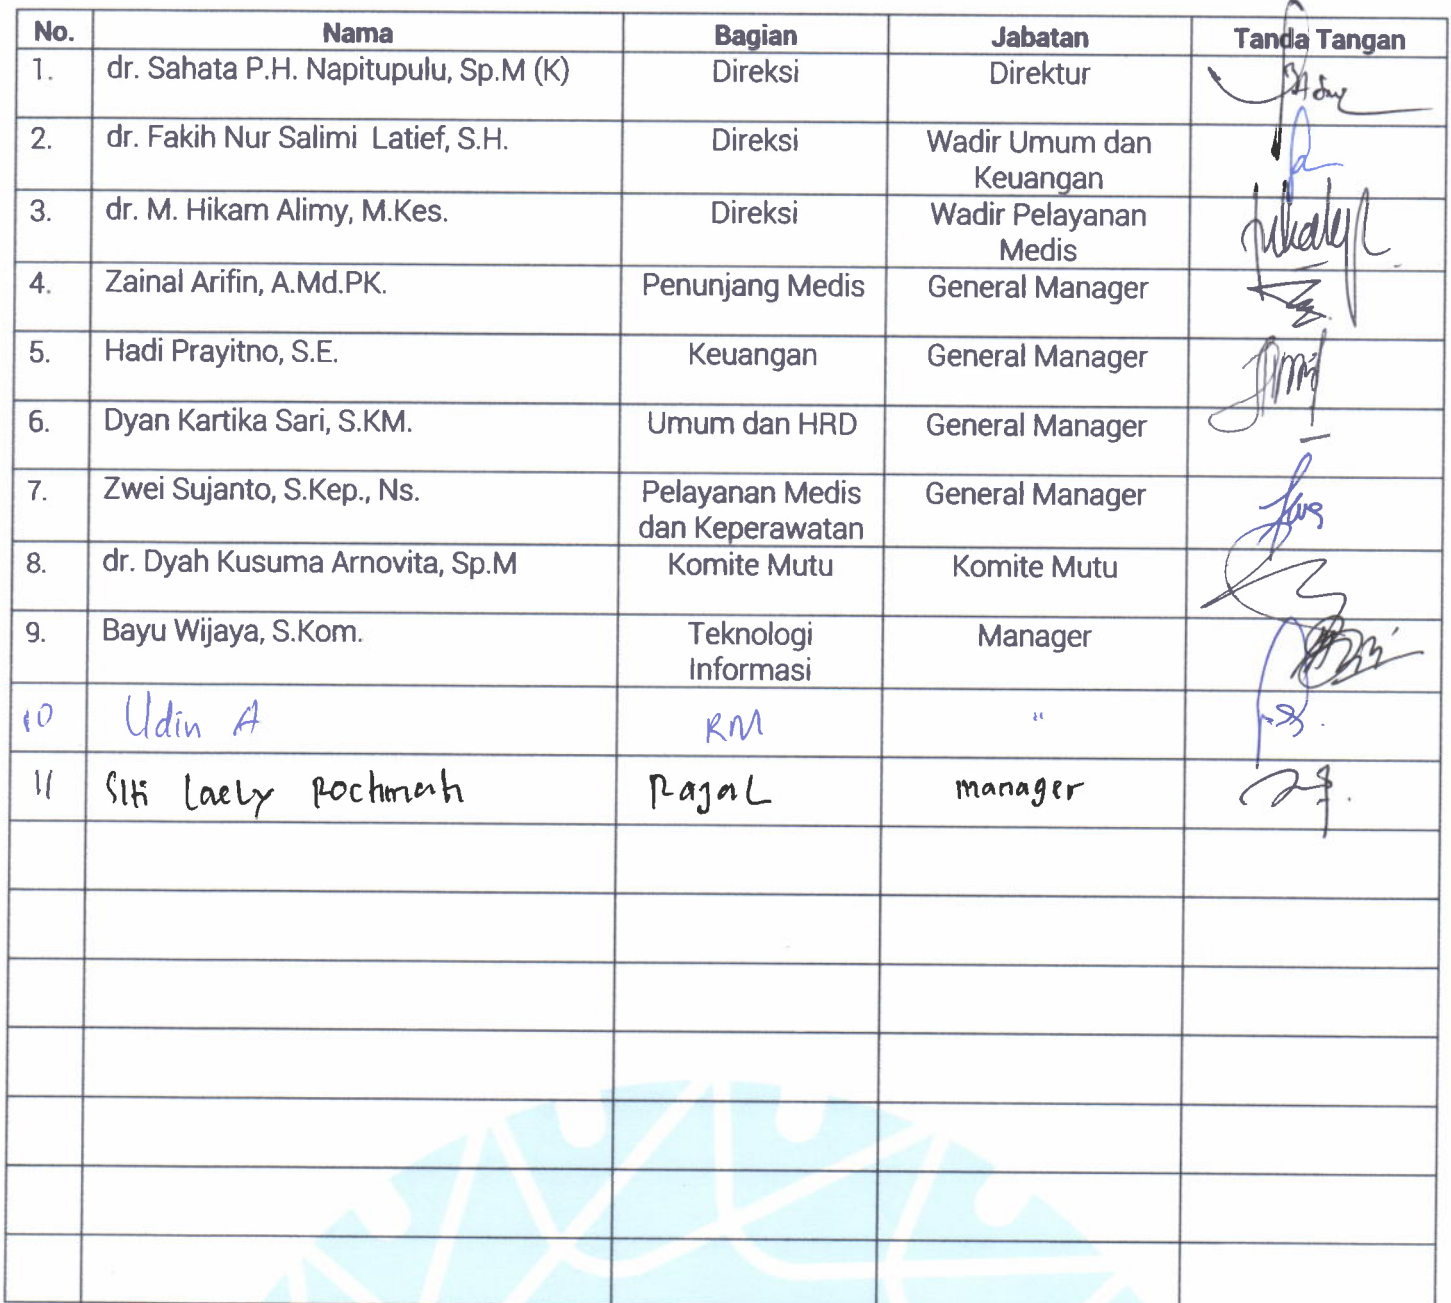 No. Nama Bagian Jabatan Tanda Tangan
1. dr. Sahata P.H. Napitupulu, Sp.M (K) Direksi Direktur
2. dr. Fakih Nur Salimi Latief, S.H. Direksi Wadir Umum dan
Keuangan
3. dr. M. Hikam Alimy, M.Kes. Direksi Wadir Pelayanan
Medis
4. Zainal Arifin, A.Md.PK. Penunjang Medis General Manager
5. Hadi Prayitno, S.E. Keuangan General Manager
6. Dyan Kartika Sari, S.KM. Umum dan HRD General Manager
7. Zwei Sujanto, S.Kep., Ns. Pelayanan Medis General Manager
dan Keperawatan
8. dr. Dyah Kusuma Arnovita, Sp.M Komite Mutu Komite Mutu
9. Bayu Wijaya, S.Kom. Teknologi Manager
Informasi
10 Udin A RM "
11 Siti Laely Rochmah Rajal manager